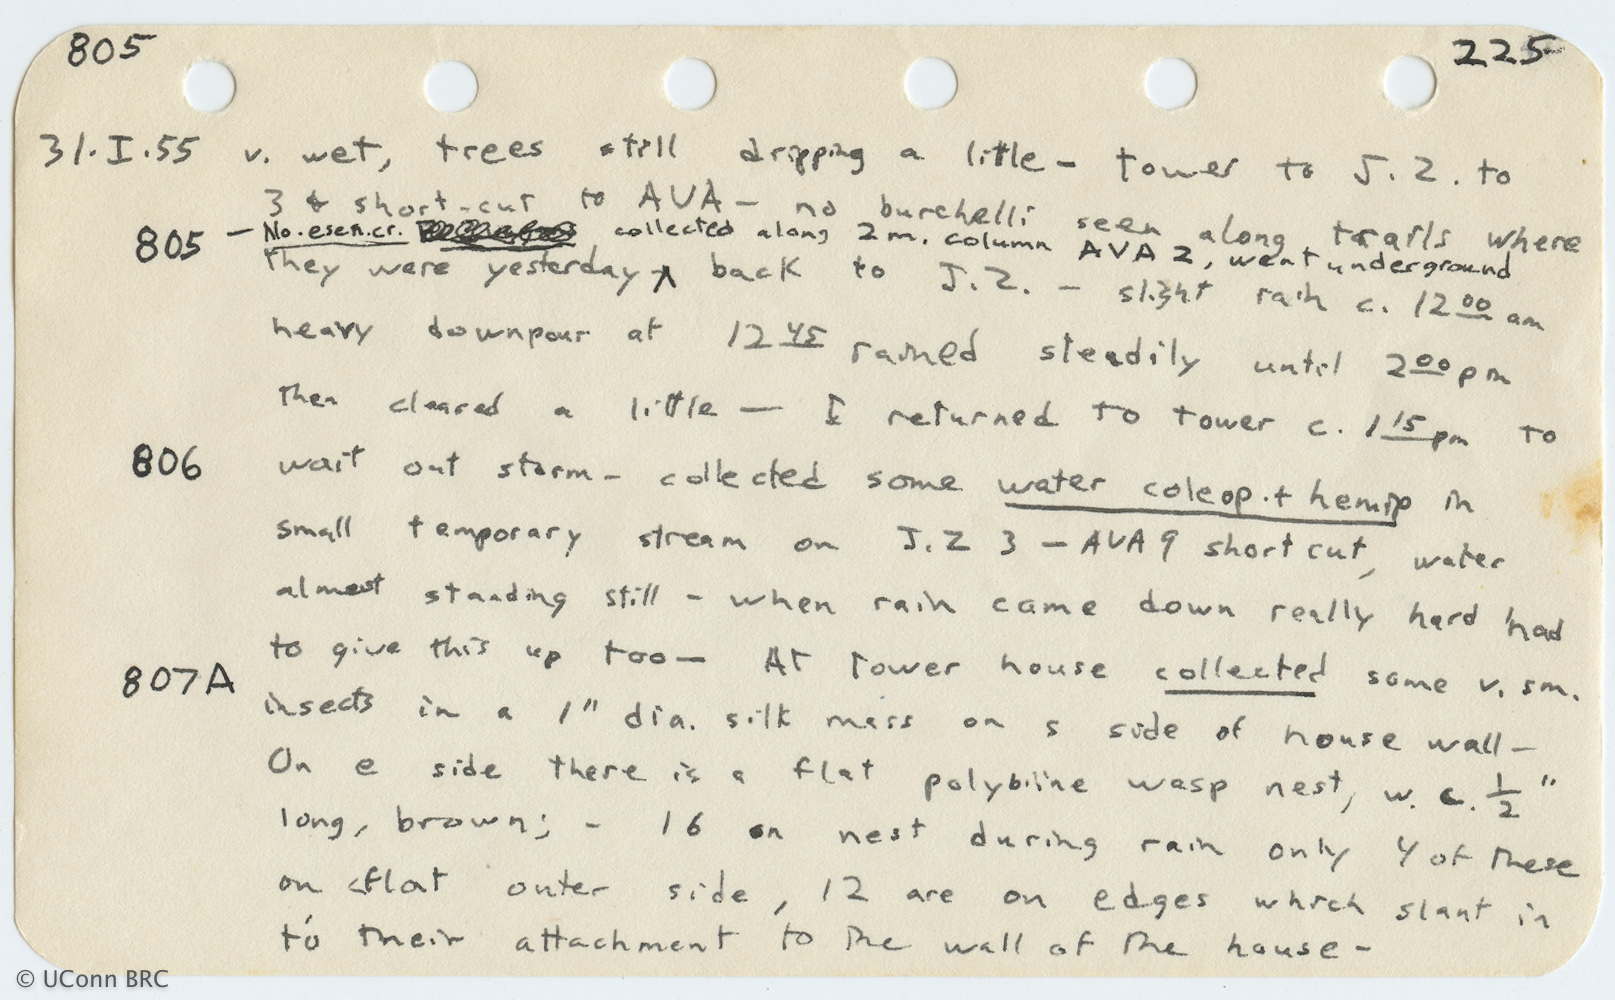 805
225
31.I.55 v. wet, trees still dripping a little - tower to J.Z. to
3 & short-cut to AVA - no burchelli seen along trails where
805 - No. esen. cr. collected along 2 m. column AVA 2, went underground
they were yesterday ^ back to J.Z. - slight rain c. 12 00 am
heavy downpour at 12 45 rained steadily until 2 00 pm
then cleared a little - I returned to tower c. 1 15 pm to
806 wait out storm - collected some water coleop. + hemip in
small temporary stream on J.Z 3 - AVA 9 short cut, water
almost standing still - when rain came down really hard had
to give this up too - At tower house collected some v. sm.
807A insects in a 1" dia. silk mass on s side of house wall -
On e side there is a flat polybiine wasp nest, w. c. 1/2"
long, brown; - 16 on nest during rain only 4 of these
on flat outer side, 12 are on edges which slant in
to their attachment to the wall of the house -
© UConn BRC